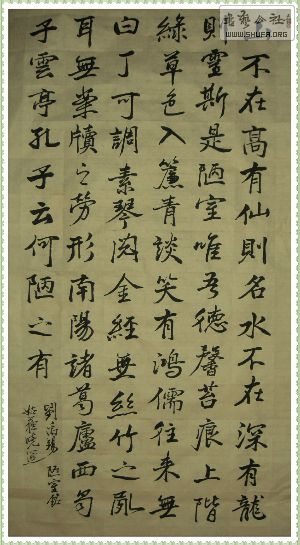 藝公社
WWW.SHUFA.ORG
不在高有仙則名水不在深有龍
則靈斯是陋室唯吾德馨苔痕上階
綠草色入簾青談笑有鴻儒往來無
白丁可調素琴閱金經無絲竹之亂
耳無案牘之勞形南陽諸葛廬西蜀
子雲亭孔子云何陋之有
劉禹錫 陋室銘